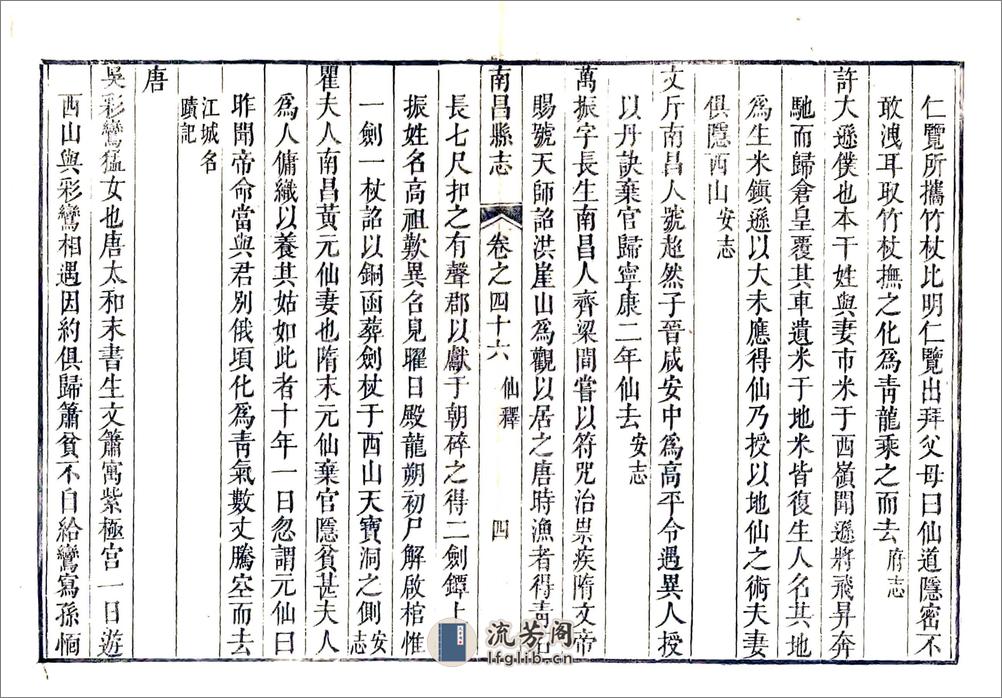 仁覽所攜竹杖比明仁覽出拜父母曰仙道隱密不
敢洩耳取竹杖撫之化爲靑龍乘之而去府志
許大遜僕也本干姓與妻市米于西嶺聞遜將飛昇奔
馳而歸倉皇覆其車遺米于地米皆復生人名其地
爲生米鎮遜以大未應得仙乃授以地仙之術夫妻
俱隱西山安志
文斤南昌人號超然子晉咸安中爲高平令遇異人授
以丹訣棄官歸寧康二年仙去安志
萬振字長生南昌人齊梁間嘗以符咒治祟疾隋文帝
賜號天師詔洪崖山爲觀以居之唐時漁者得靑石
南昌縣志 卷之四十六 仙釋 四
長七尺扣之有聲郡以獻于朝碎之得二劍鐔上
振姓名高祖歎異召見曜日殿龍朔初尸解啟棺惟
一劍一杖詔以銅函葬劍杖于西山天寶洞之側安志
瞿夫人南昌黃元仙妻也隋末元仙棄官隱貧甚夫人
爲人傭織以養其姑如此者十年一日忽謂元仙曰
昨聞帝命當與君別俄頃化爲靑氣數丈騰空而去
江城名蹟記
唐
吳彩鸞猛女也唐太和末書生文簫寓紫極宮一日遊
西山與彩鸞相遇因約俱歸簫貧不自給鸞寫孫愐
流芳阁
lfglib.cn